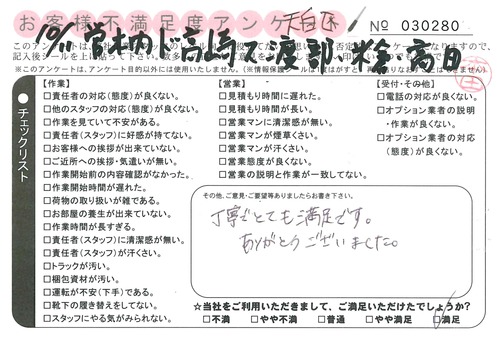 お客様不満足度アンケ
No 030280
【作業】
□責任者の対応(態度)が良くない。
□他のスタッフの対応(態度)が良くない。
□作業を見ていて不安がある。
□責任者(スタッフ)に好感が持てない。
□お客様への挨拶が出来ていない。
□ご近所への挨拶・気遣いが無い。
□作業開始前の内容確認がなかった。
□作業開始時間が遅れた。
□荷物の取り扱いが雑である。
□お部屋の養生が出来ていない。
□作業時間が長すぎる。
□責任者(スタッフ)に清潔感が無い。
□責任者(スタッフ)が汗くさい。
□トラックが汚い。
□梱包資材が汚い。
□運転が不安(下手)である。
□靴下の履き替えをしてない。
□スタッフにやる気がみられない。
【営業】
□見積もり時間に遅れた。
□見積もり時間が長い。
□営業マンに清潔感が無い。
□営業マンが煙草くさい。
□営業マンが汗くさい。
□営業態度が良くない。
□営業の説明と作業が一致してない。
【受付・その他】
□電話の対応が良くない。
□オプション業者の説明
・作業が良くない。
□オプション業者の対応
(態度)が良くない。
●チェックリスト
その他、ご意見・ご要望等ありましたらお書き下さい。
丁寧でとても満足です。
ありがとうございました。
☆当社をご利用いただきまして、ご満足いただけたでしょうか?
□不満 □やや不満 □普通 □やや満足 □満足